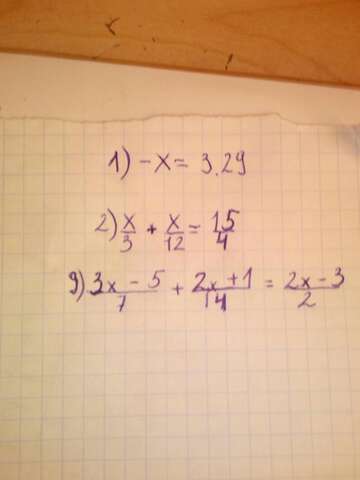 1) -x = 3.29
2) x/3 + x/12 = 15/4
9) 3x - 5/7 + 2x + 1/14 = 2x - 3/2